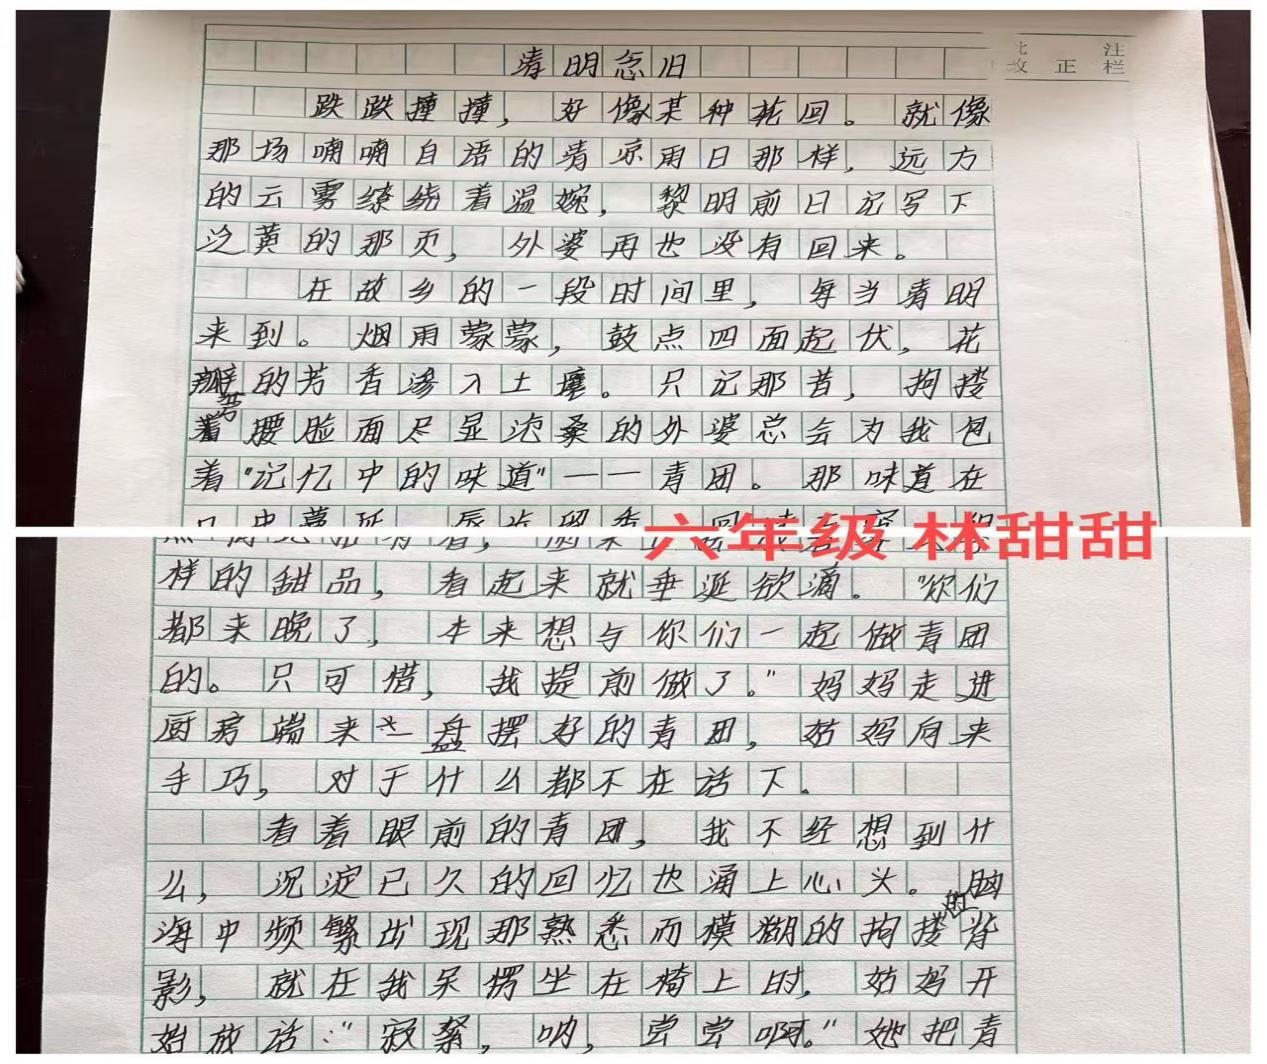 清明念旧
批 注
改 正 栏
跌跌撞撞,好像某种轮回。就像
那场喃喃自语的清凉雨日那样,远方
的云雾缭绕着温婉,黎明前日记写下
泛黄的那页,外婆再也没有回来。
在故乡的一段时间里,每当清明
来到。烟雨蒙蒙,鼓点四面起伏,花
瓣的芳香渗入土壤。只记那昔,拘搂
着腰脸面尽显沧桑的外婆总会为我包
着"记忆中的味道"——青团。那味道在
六年级 林甜甜
样的甜品,看起来就垂涎欲滴。"你们
都来晚了,本来想与你们一起做青团
的。只可惜,我提前做了。"妈妈走进
厨房端来一盘摆好的青团,姑妈向来
手巧,对于什么都不在话下。
看着眼前的青团,我不经想到什
么,沉淀已久的回忆也涌上心头。脑
海中频繁出现那熟悉而模糊的拘搂的背
影,就在我呆愣坐在椅上时,姑妈开
始放话:"寂絮,呐,尝尝啊。"她把青